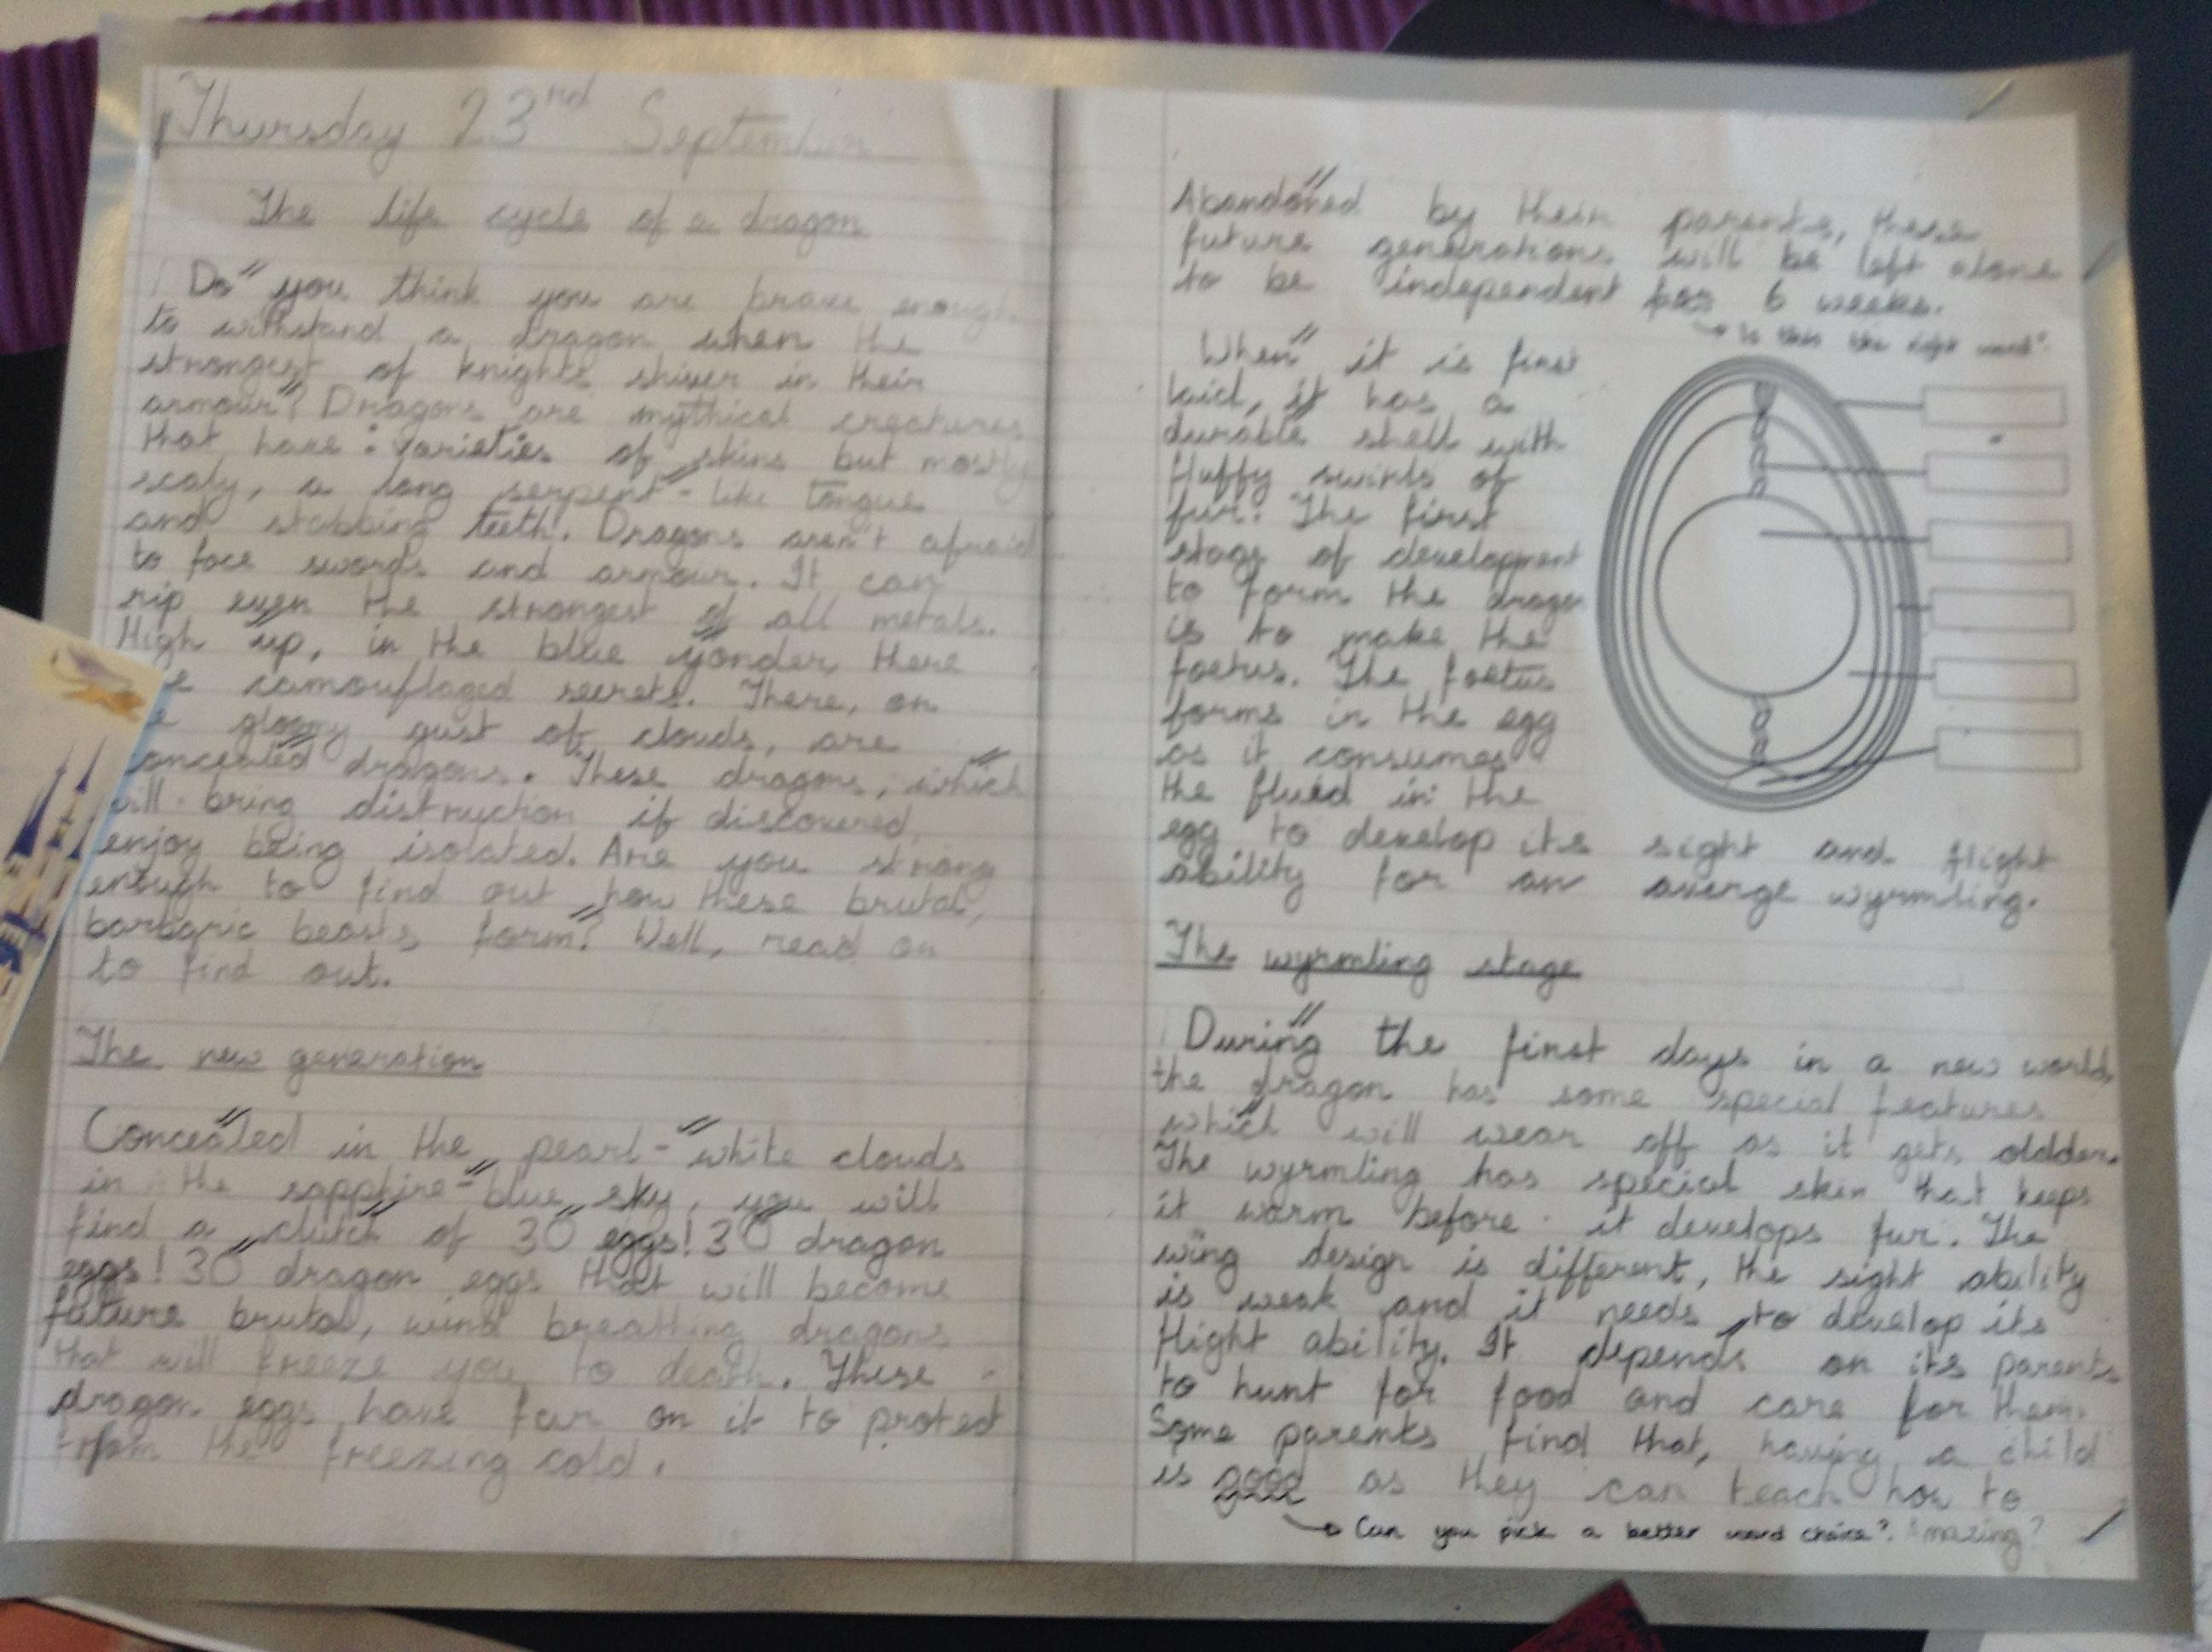 Thursday 23rd September
The life cycle of a dragon
Do you think you are brave enough
to withstand a dragon when the
strongest of knights shiver in their
armour? Dragons are mythical creatures
that have: varieties of skins but mostly
scaly, a long serpent-like tongue
and stabbing teeth. Dragons aren't afraid
to face swords and armour. It can
rip even the strongest of all metals.
High up, in the blue yonder, there
camouflaged secrets. There, on
gloomy gust of clouds, are
concealed dragons. These dragons, which
will bring distruction if discovered,
enjoy being isolated. Are you strong
enough to find out how these brutal,
barbaric beasts form? Well, read on
to find out.
The new generation
Concealed in the pearl-white clouds
in the sapphire-blue sky, you will
find a clutch of 30 eggs! 30 dragon
eggs! 30 dragon eggs that will become
future brutal, wind breathing dragons
that will freeze you to death. These
dragon eggs have fur on it to protect
from the freezing cold.
Abandoned by their parents, these
future generations will be left alone
to be independent for 6 weeks.
Is this the right word?
When it is first
laid, it has a
durable shell with
fluffy swirls of
fur. The first
stage of development
to form the dragon
is to make the
foetus. The foetus
forms in the egg
as it consumes
the fluid in the
egg to develop its sight and flight
ability for an averge wyrmling.
The wyrmling stage
During the first days in a new world,
the dragon has some special features
which will wear off as it gets oldder.
The wyrmling has special skin that keeps
it warm before it develops fur. The
wing design is different, the sight ability
is weak and it needs to develop its
flight ability. It depends on its parents
to hunt for food and care for them.
Some parents find that, having a child
is good as they can teach how to
Can you pick a better word choice? Amazing?